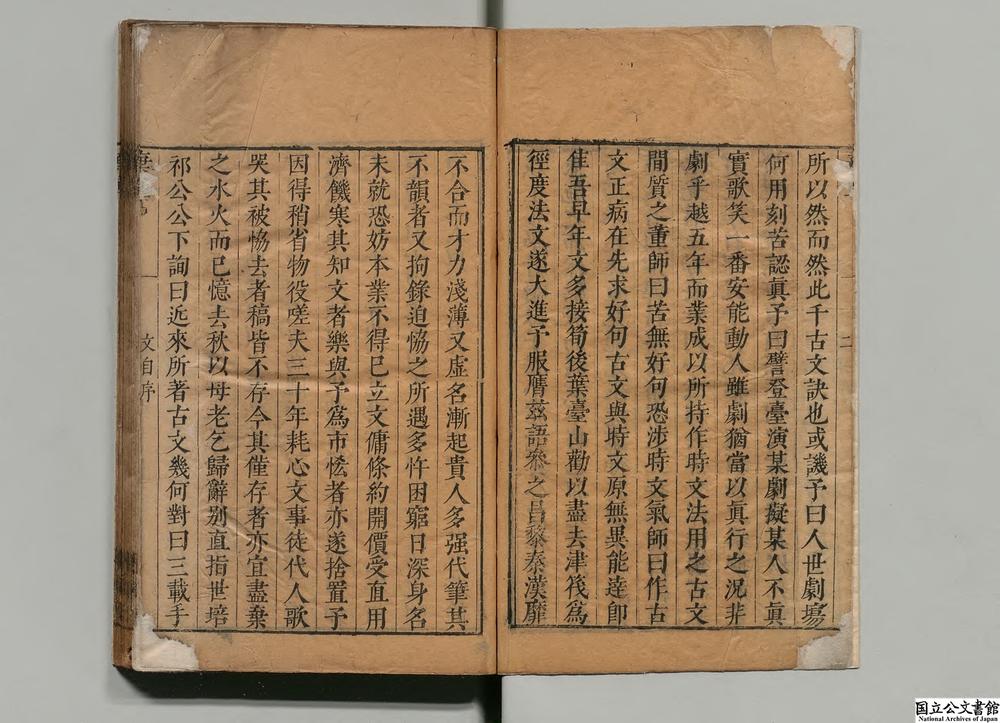 所以然而然此千古文訣也或譏予曰人世劇場
何用刻苦認眞予曰譬登臺演某劇擬某人不眞
實歌笑一番安能動人雖劇猶當以眞行之況非
劇乎越五年而業成以所持作時文法用之古文
間質之董師曰苦無好句恐涉時文氣師曰作古
文正病在先求好句古文與時文原無異能達卽
佳吾早年文多接筍後葉臺山勸以盡去津筏爲
徑度法文遂大進予服膺茲語叅之昌黎秦漢靡
不合而才力淺薄又虛名漸起貴人多强代筆其
不韻者又拘錄迫愶之所遇多忤困窮日深身名
未就恐妨本業不得已立文傭條約開價受直用
濟饑寒其知文者樂與予爲市恡者亦遂捨置予
因得稍省物役嗟夫三十年耗心文事徒代人歌
哭其被愶去者稿皆不存今其僅存者亦宜盡棄
之水火而已憶去秋以母老乞歸辭别直指世培
祁公公下詢曰近來所著古文幾何對曰三載手
文自序
二
国立公文書館
National Archives of Japan